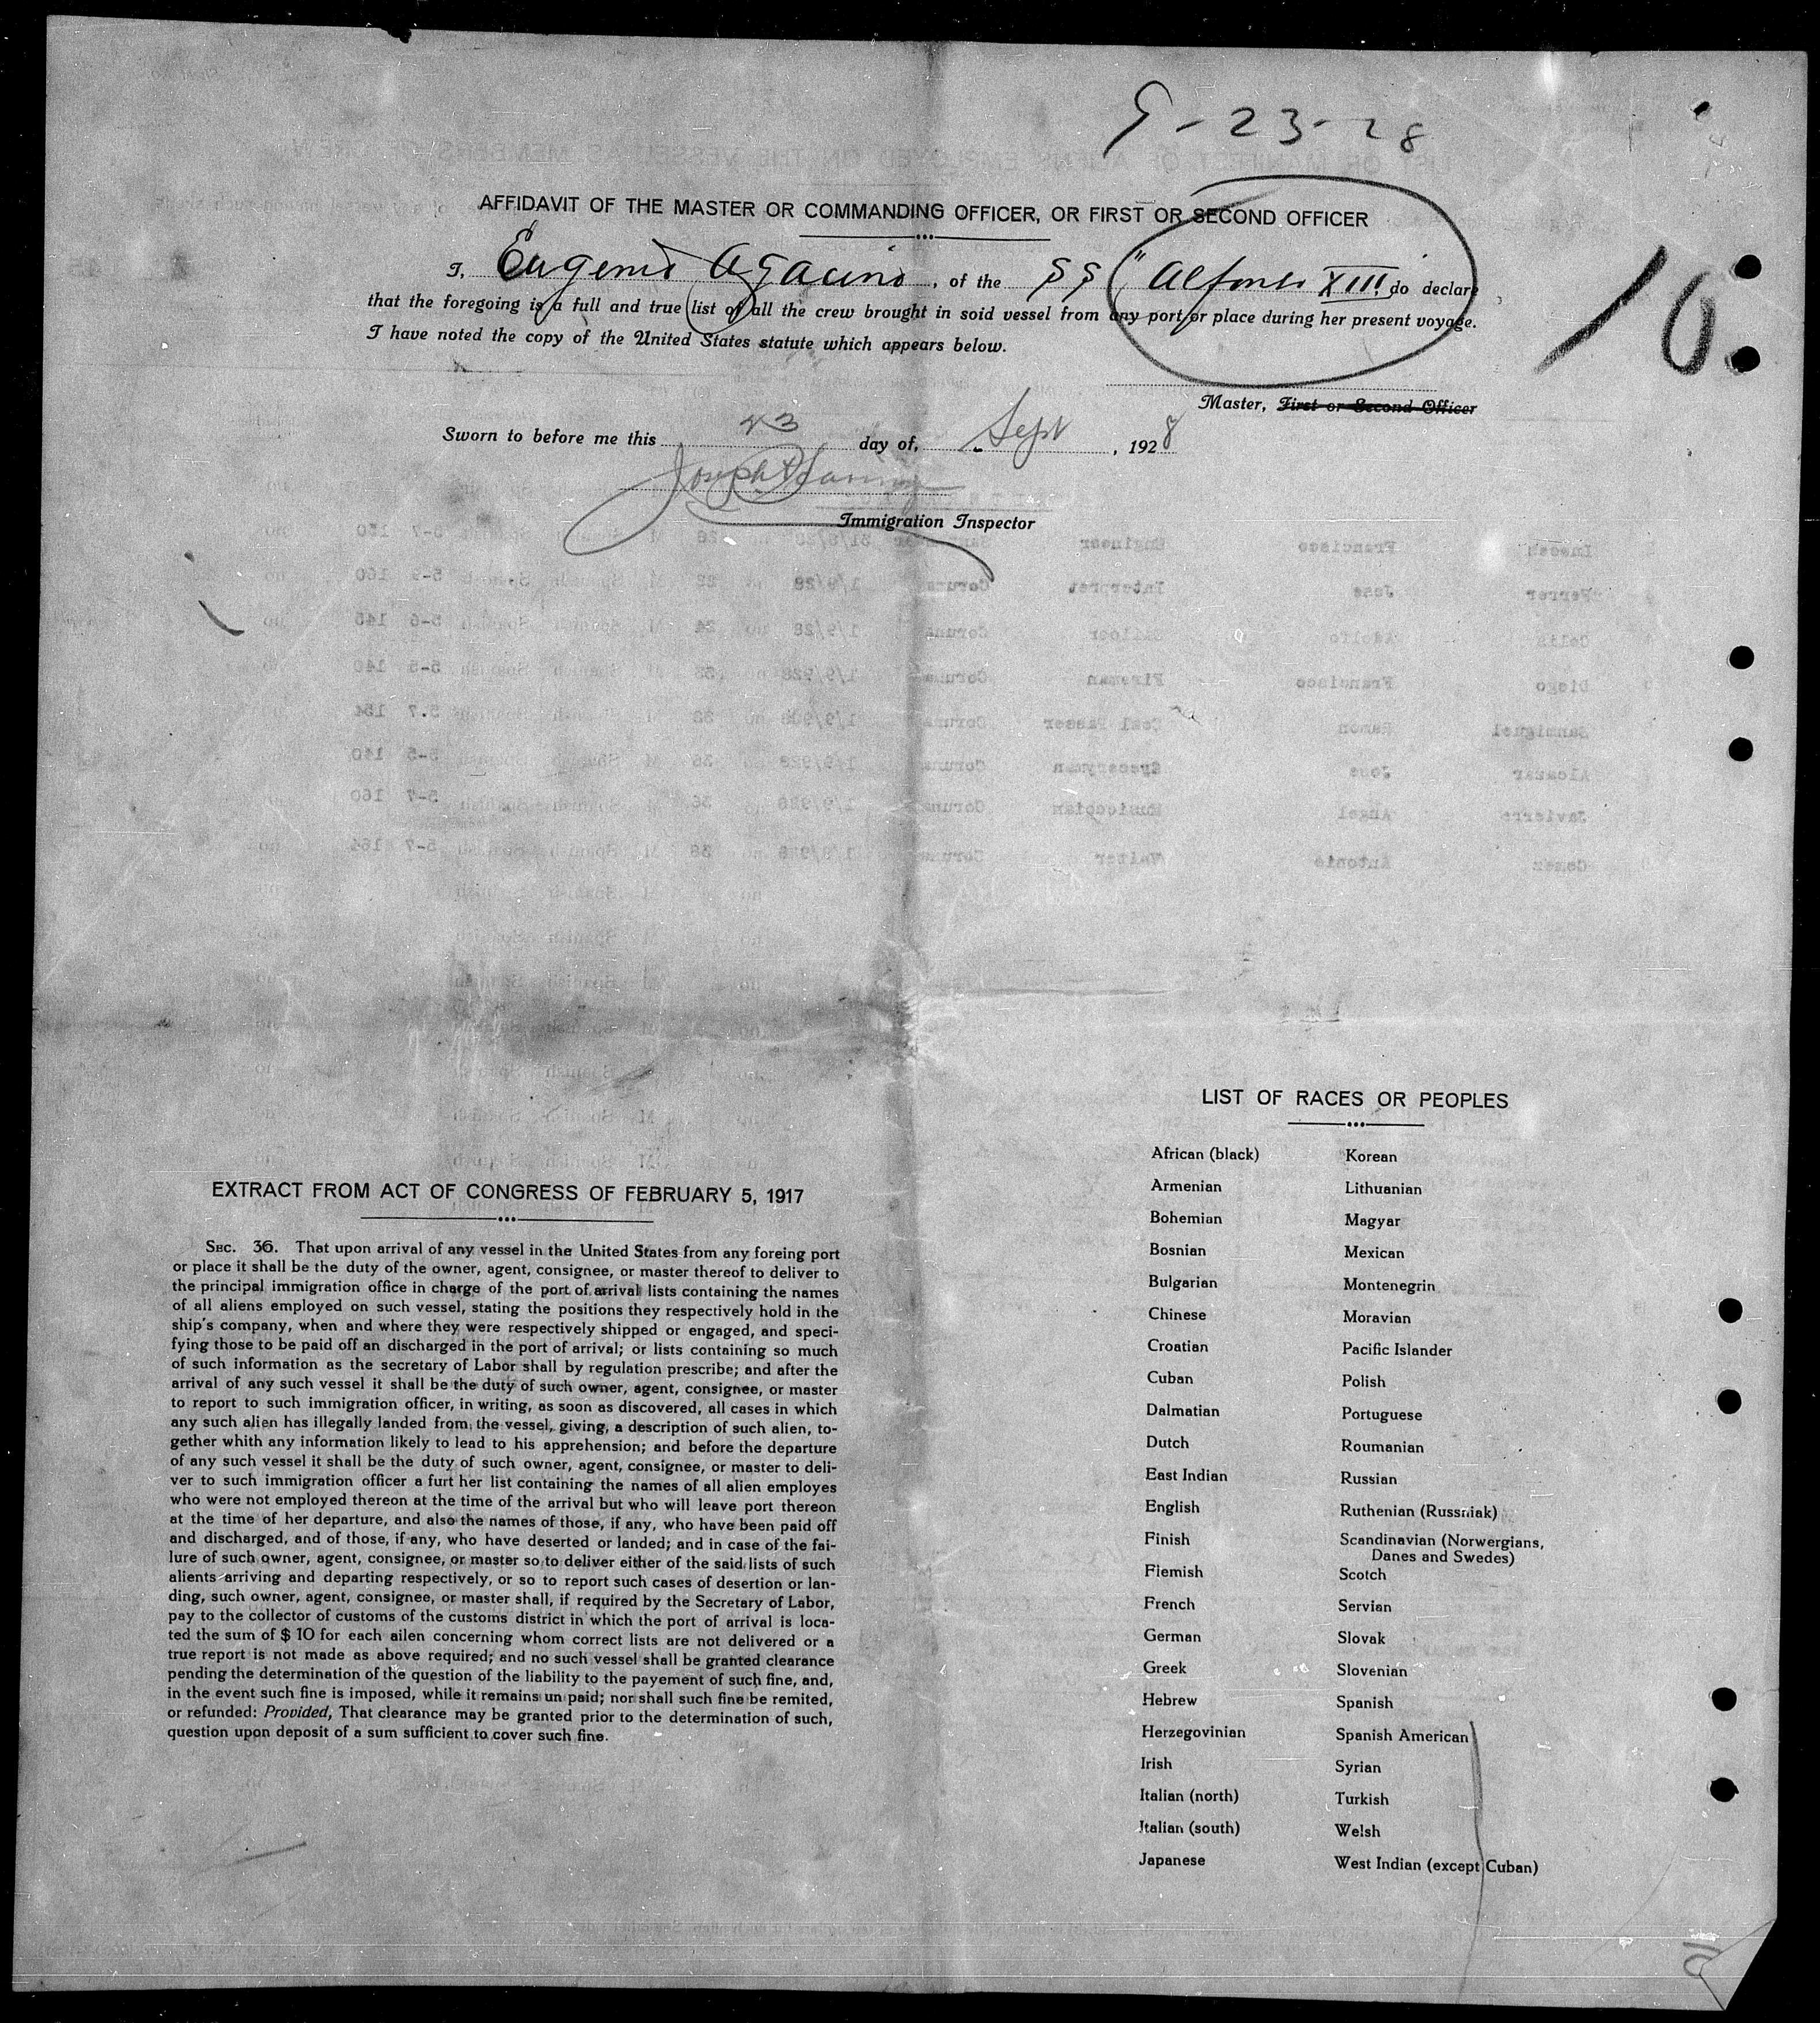 9-23-28
AFFIDAVIT OF THE MASTER OR COMMANDING OFFICER, OR FIRST OR SECOND OFFICER
I, Eugenio Agacino, of the SS "Alfonso XIII" do declare
that the foregoing is a full and true list of all the crew brought in soid vessel from any port or place during her present voyage.
I have noted the copy of the United States statute which appears below.
10.
Master, First or Second Officer
Sworn to before me this 23 day of, Sept, 1928
Joseph
Immigration Inspector
EXTRACT FROM ACT OF CONGRESS OF FEBRUARY 5, 1917
SEC. 36. That upon arrival of any vessel in the United States from any foreing port
or place it shall be the duty of the owner, agent, consignee, or master thereof to deliver to
the principal immigration office in charge of the port of arrival lists containing the names
of all aliens employed on such vessel, stating the positions they respectively hold in the
ship's company, when and where they were respectively shipped or engaged, and speci-
fying those to be paid off an discharged in the port of arrival; or lists containing so much
of such information as the secretary of Labor shall by regulation prescribe; and after the
arrival of any such vessel it shall be the duty of such owner, agent, consignee, or master
to report to such immigration officer, in writing, as soon as discovered, all cases in which
any such alien has illegally landed from the vessel, giving, a description of such alien, to-
gether whith any information likely to lead to his apprehension; and before the departure
of any such vessel it shall be the duty of such owner, agent, consignee, or master to deli-
ver to such immigration officer a furt her list containing the names of all alien employes
who were not employed thereon at the time of the arrival but who will leave port thereon
at the time of her departure, and also the names of those, if any, who have been paid off
and discharged, and of those, if any, who have deserted or landed; and in case of the fai-
lure of such owner, agent, consignee, or master so to deliver either of the said lists of such
alients arriving and departing respectively, or so to report such cases of desertion or lan-
ding, such owner, agent, consignee, or master shall, if required by the Secretary of Labor,
pay to the collector of customs of the customs district in which the port of arrival is loca-
ted the sum of $ 10 for each ailen concerning whom correct lists are not delivered or a
true report is not made as above required; and no such vessel shall be granted clearance
pending the determination of the question of the liability to the payement of such fine, and,
in the event such fine is imposed, while it remains un paid; nor shall such fine be remited,
or refunded: Provided, That clearance may be granted prior to the determination of such,
question upon deposit of a sum sufficient to cover such fine.
LIST OF RACES OR PEOPLES
African (black) Korean
Armenian Lithuanian
Bohemian Magyar
Bosnian Mexican
Bulgarian Montenegrin
Chinese Moravian
Croatian Pacific Islander
Cuban Polish
Dalmatian Portuguese
Dutch Roumanian
East Indian Russian
English Ruthenian (Russniak)
Finish Scandinavian (Norwergians,
Danes and Swedes)
Flemish Scotch
French Servian
German Slovak
Greek Slovenian
Hebrew Spanish
Herzegovinian Spanish American
Irish Syrian
Italian (north) Turkish
Italian (south) Welsh
Japanese West Indian (except Cuban)